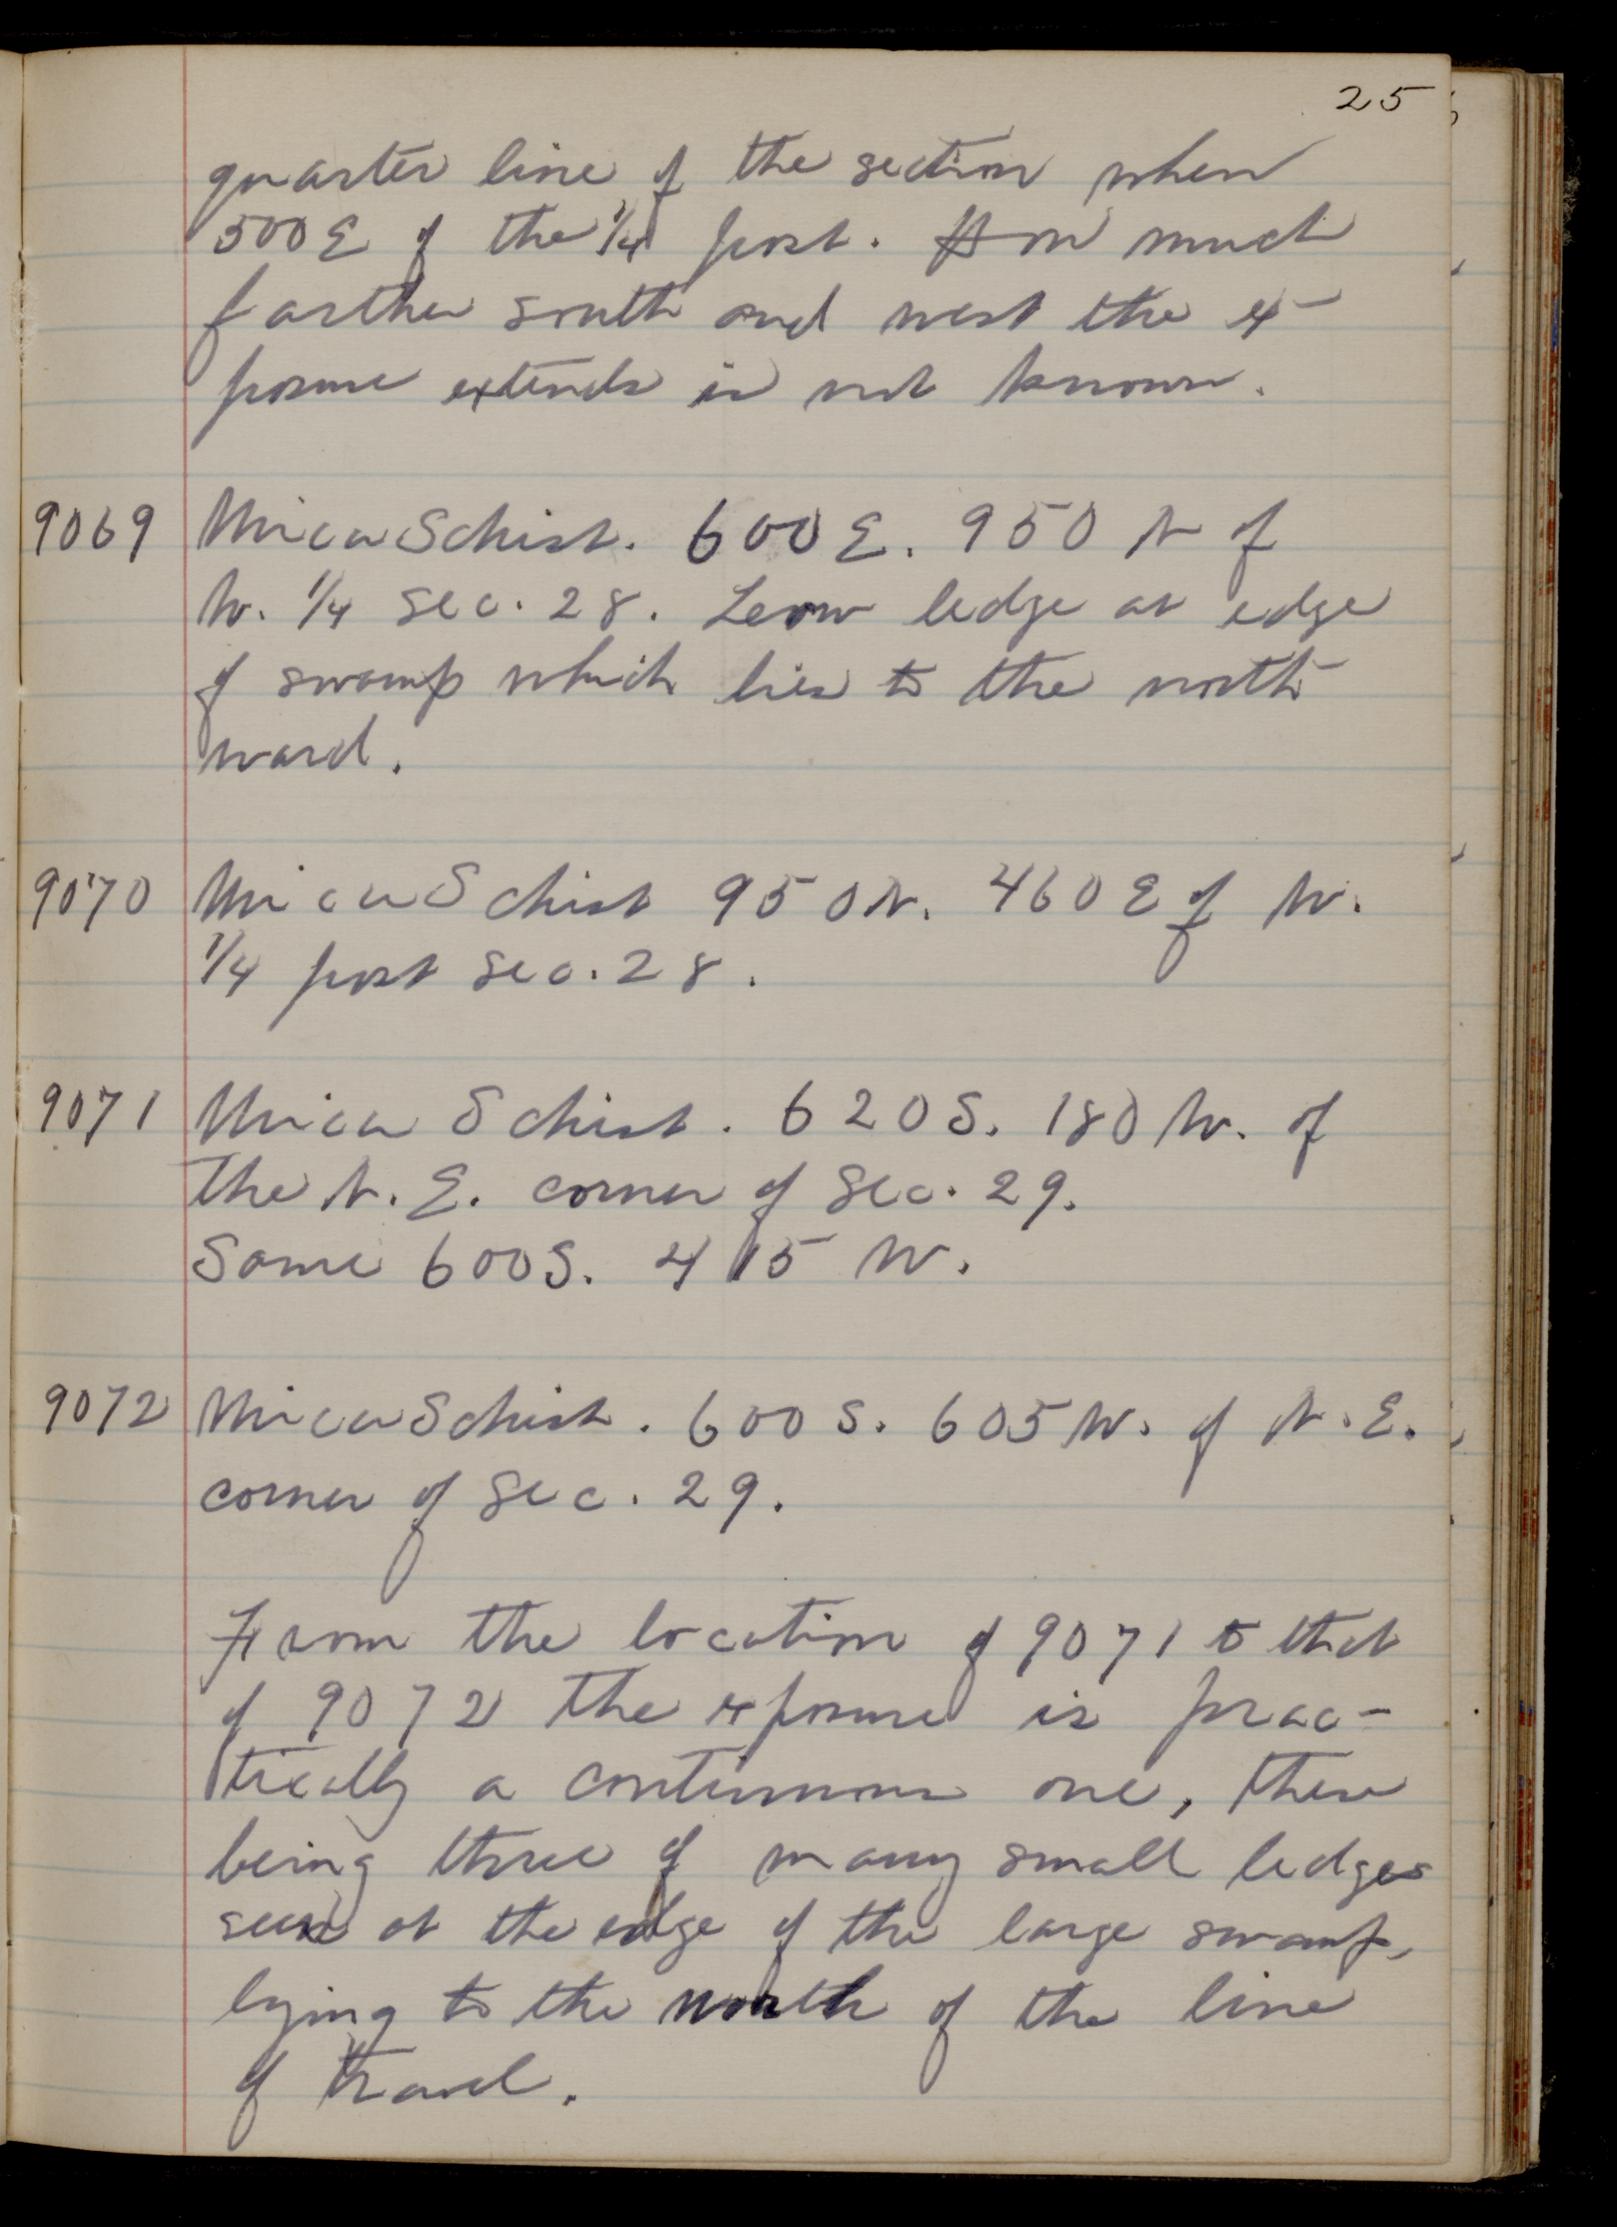 25
quarter line of the section when
500 E of the 1/4 post. How much
farther south and west the ex-
posure extends is not known.
9069 Mica Schist. 600 E. 950 N of
W. 1/4 Sec. 28. Low ledge at edge
of swamp which lies to the north
ward.
9070 Mica Schist 950 N. 460 E of W.
1/4 post Sec. 28.
9071 Mica Schist. 620 S. 180 W. of
the N. E. corner of Sec. 29.
Same 600 S. 415 W.
9072 Mica Schist. 600 S. 605 W. of N. E.
corner of Sec. 29.
From the location of 9071 to that
of 9072 the exposure is prac-
tically a continuous one, these
being three of many small ledges
seen at the edge of the large swamp,
lying to the north of the line
of travel.